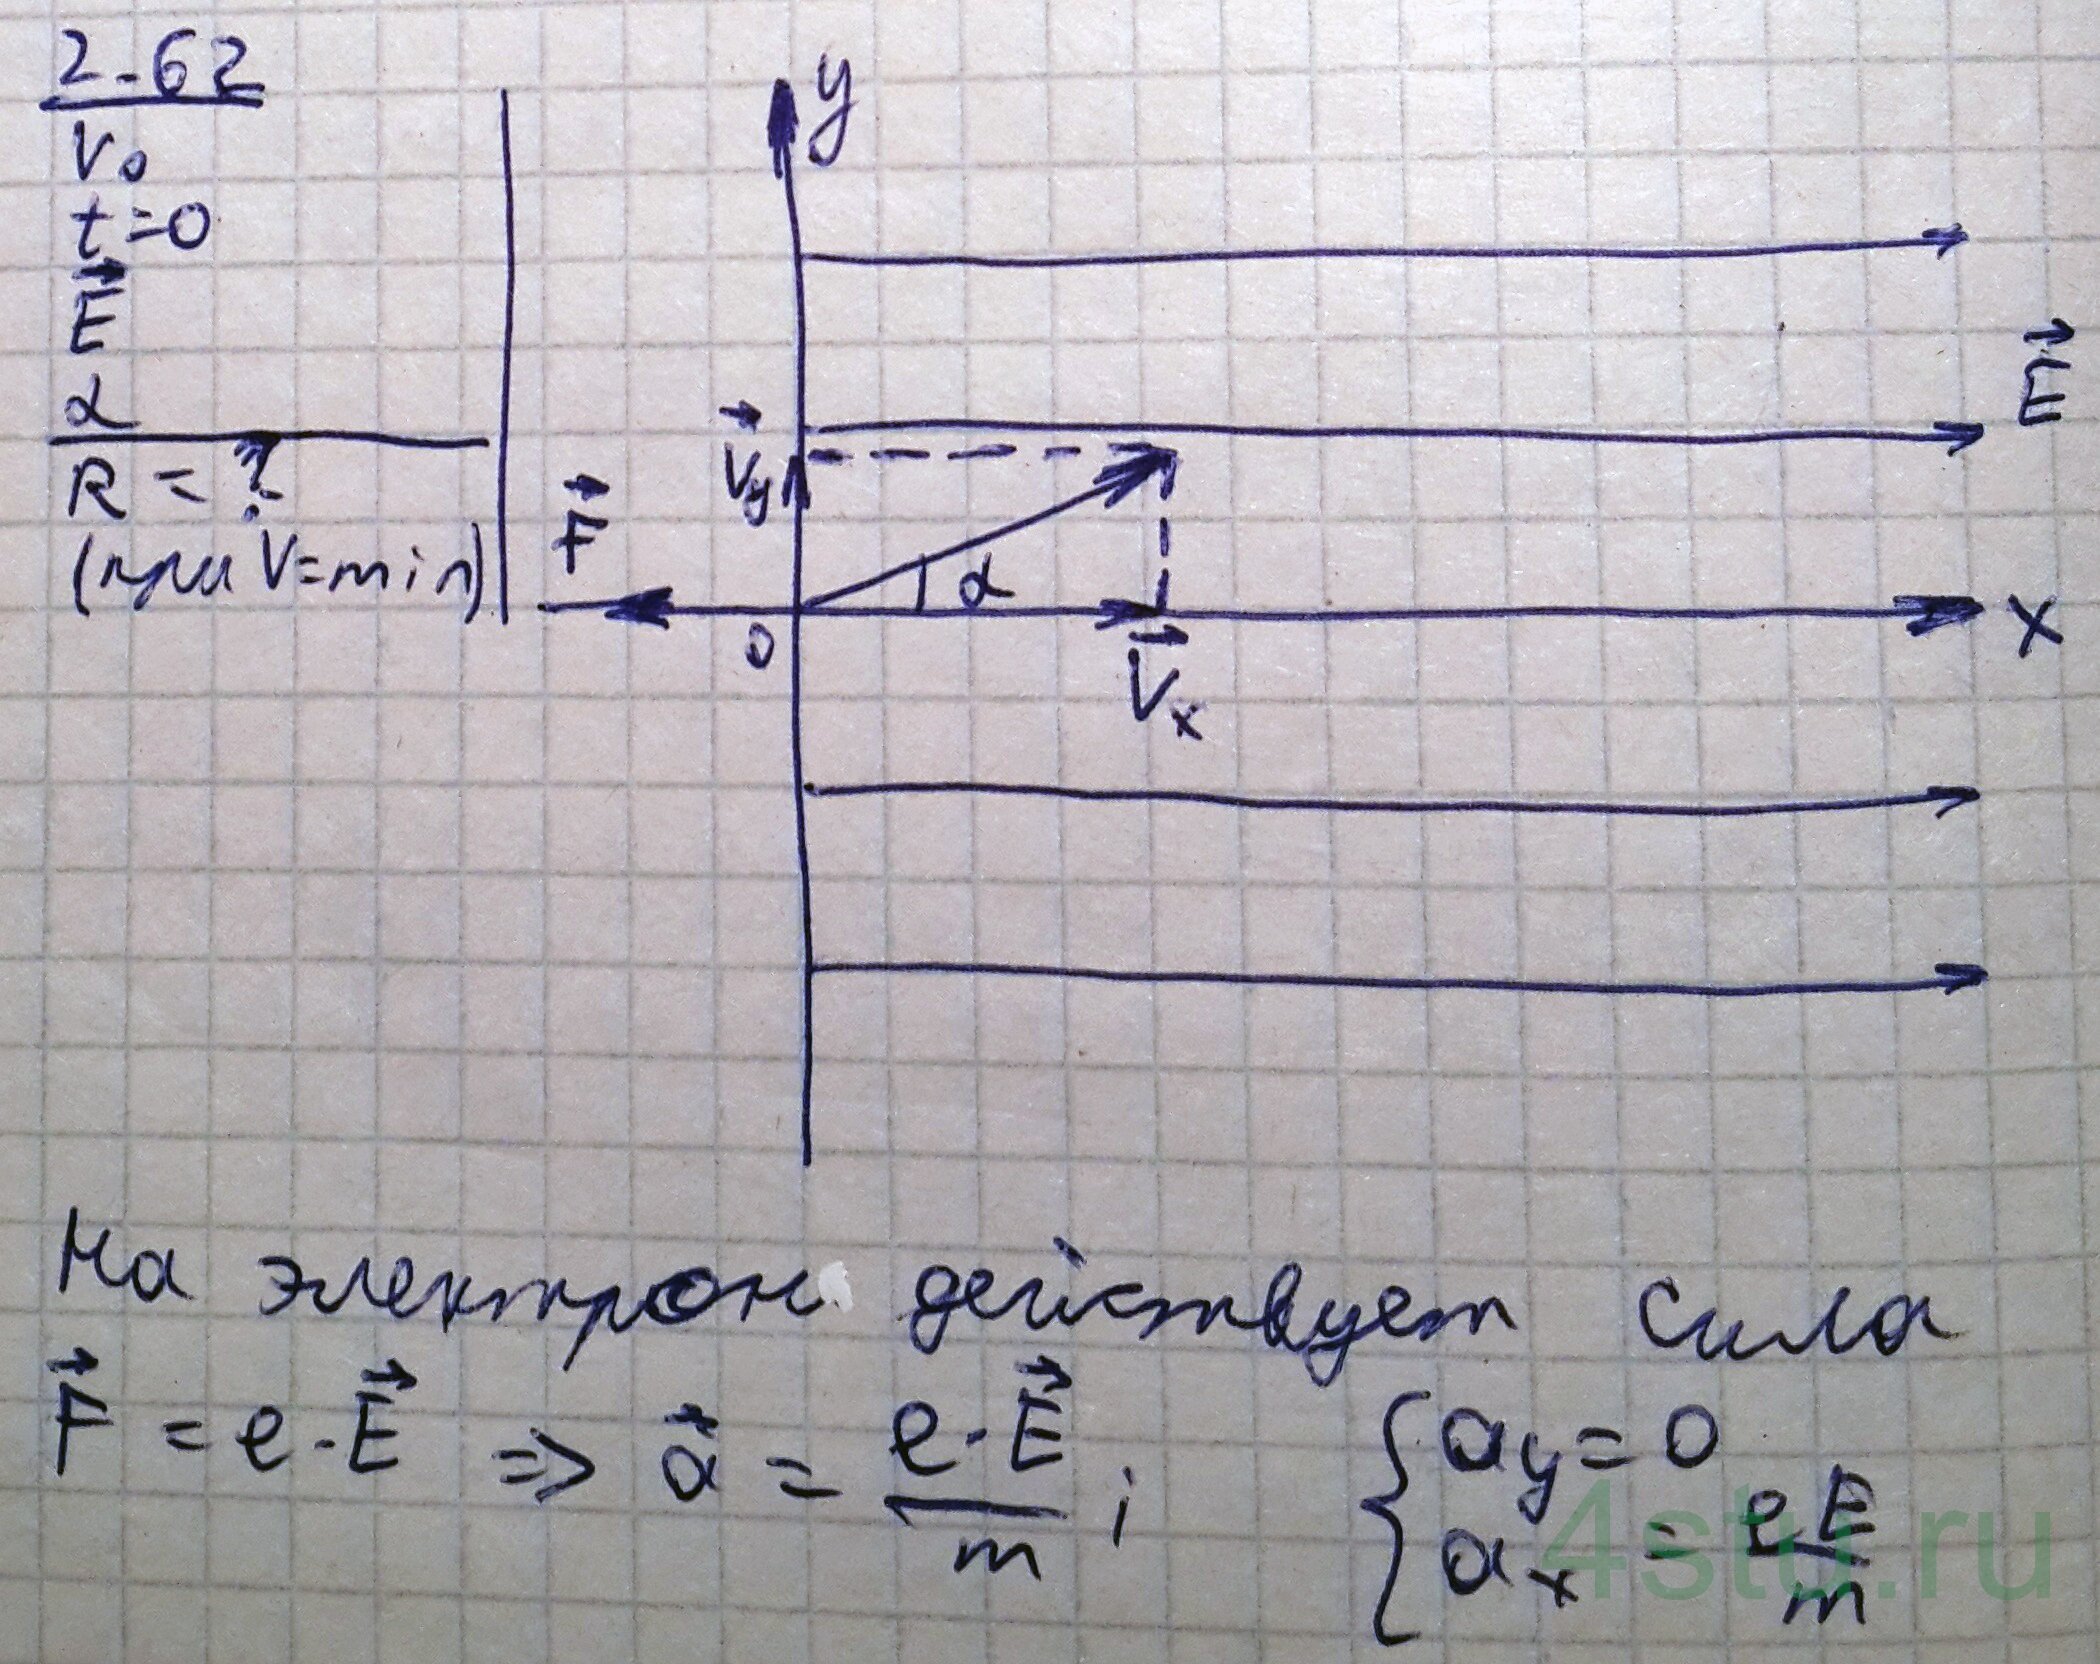 2-62
V₀
t=0
E⃗
α
R = ?
(при V=min)
y
E⃗
V⃗y
F⃗
α
0
V⃗x
x
На электрон действует сила
F⃗ = e·E⃗ => a⃗ = e·E⃗/m ; { ay = 0
ax = eE/m
4stu.ru